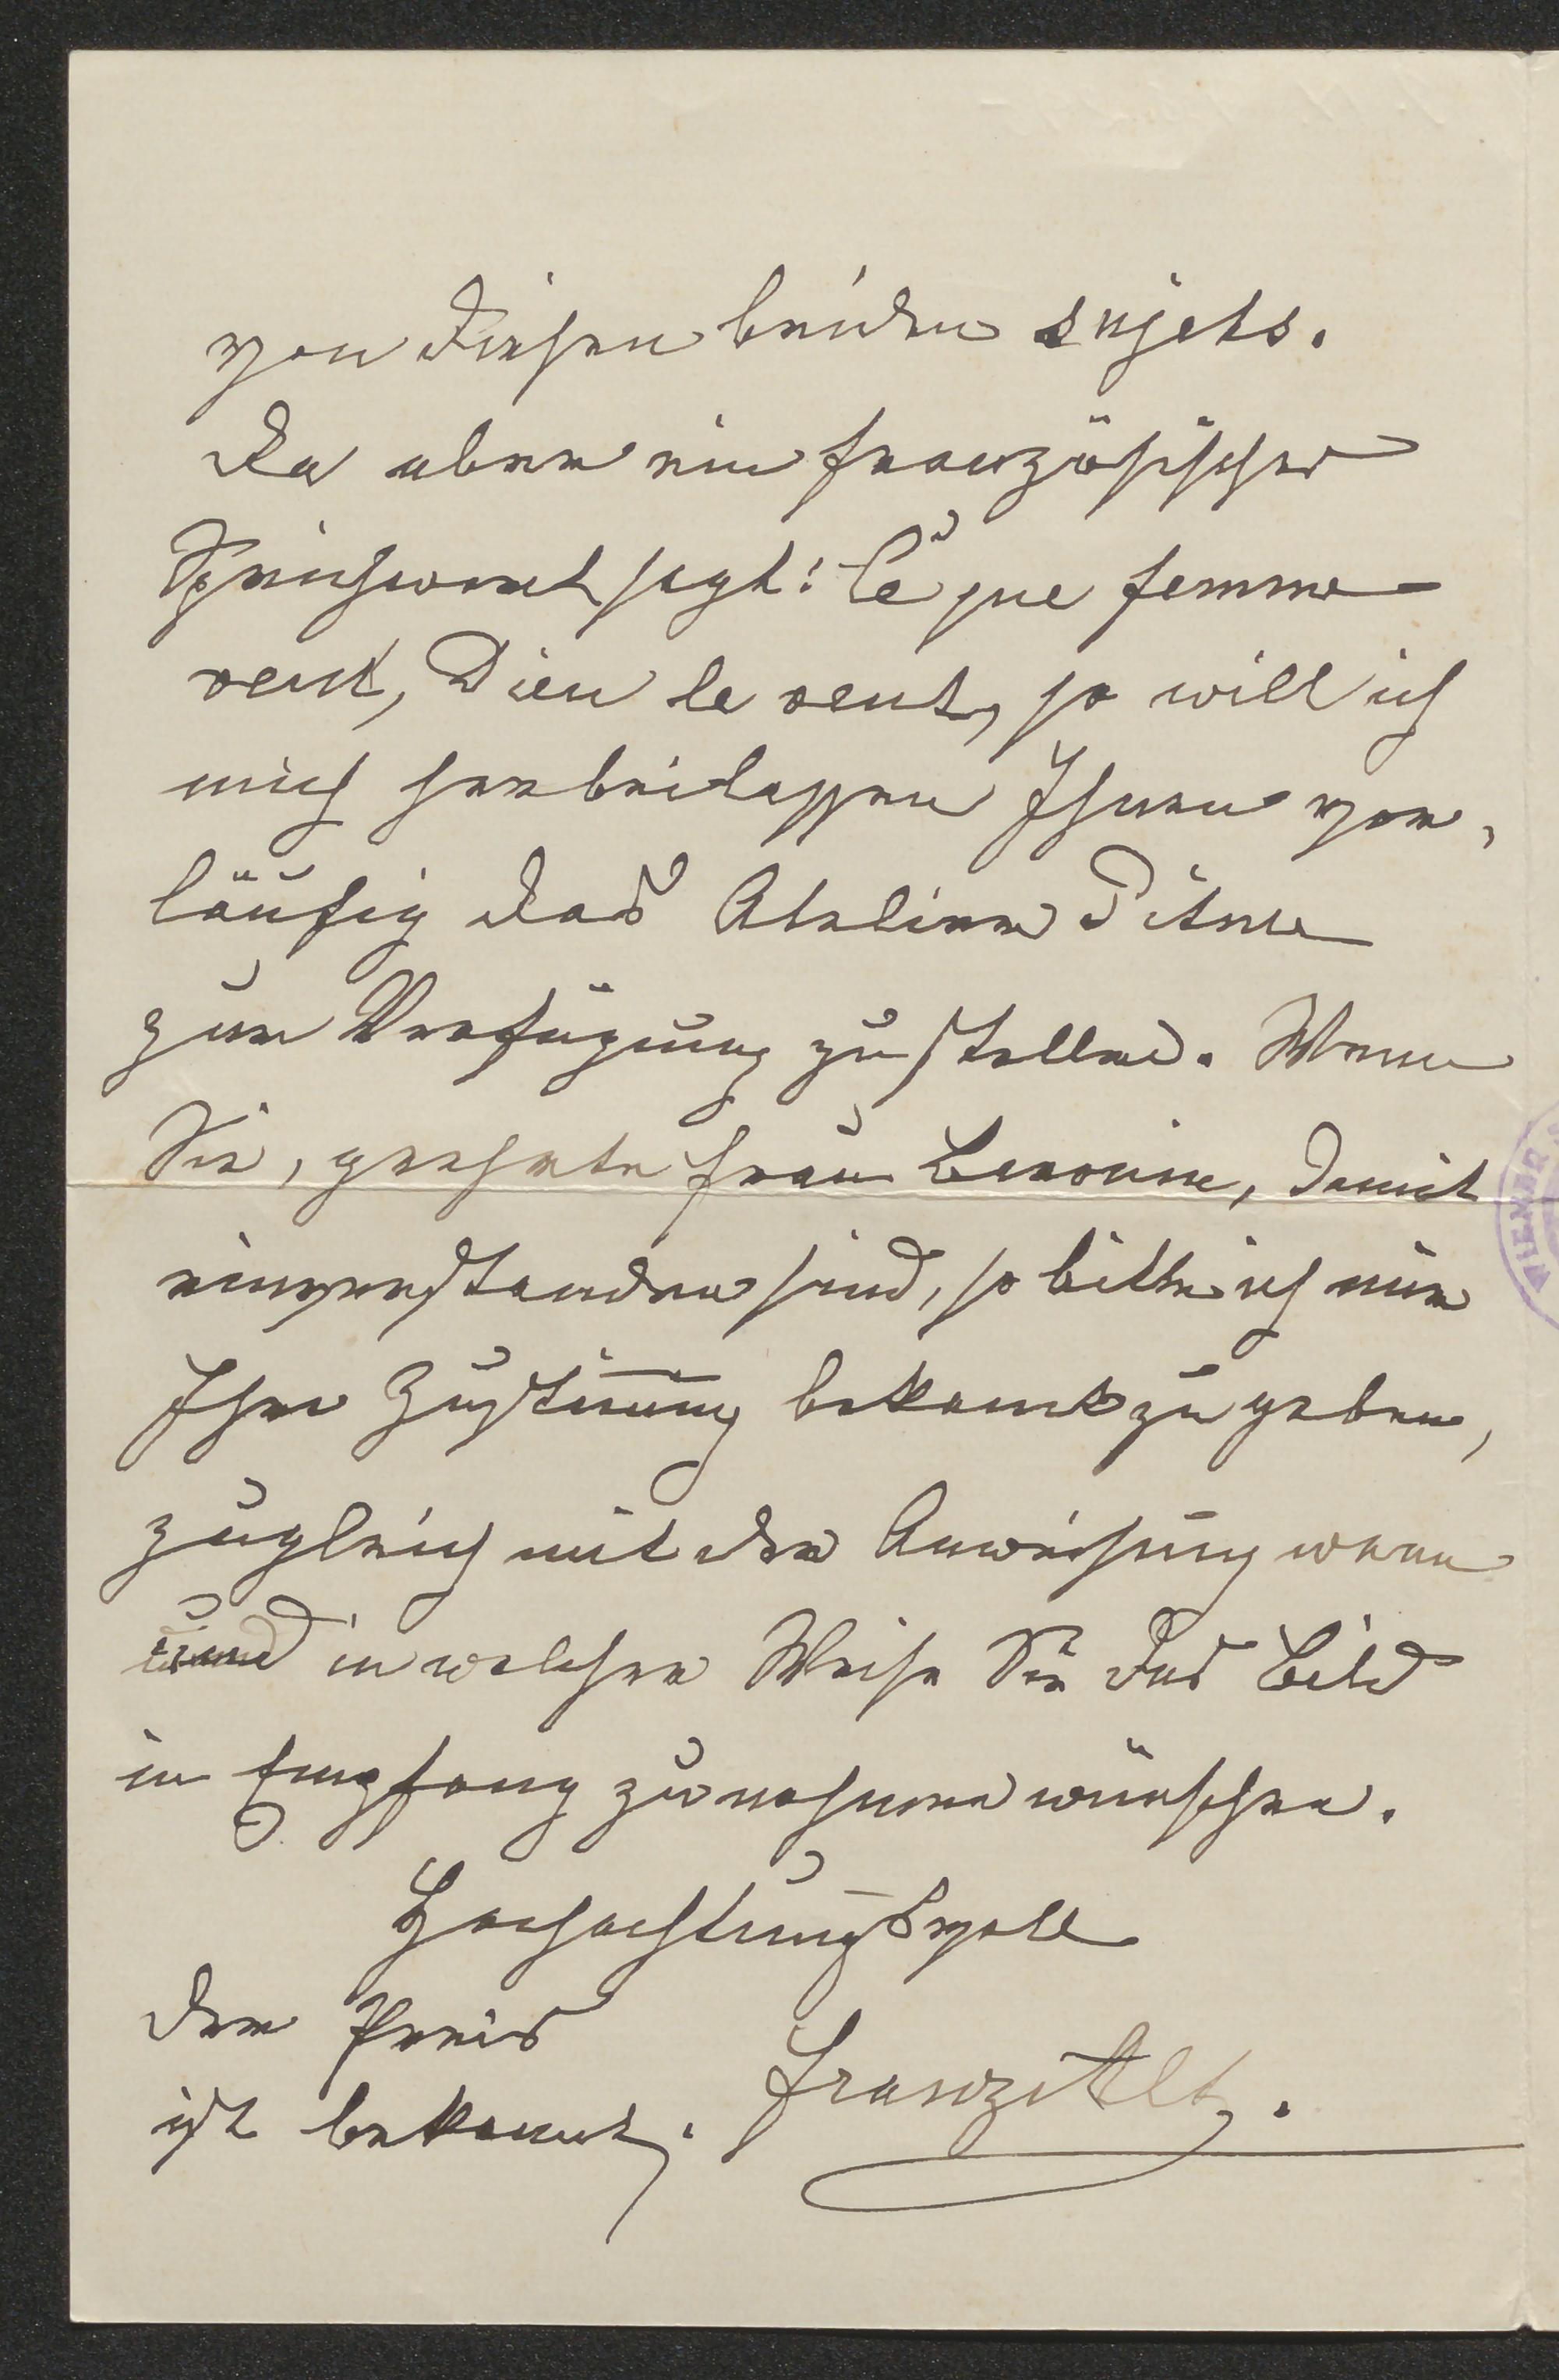 von diesen beiden sujets.
Da aber ein französisches
Sprichwort sagt: Ce que femme
veut, Dieu le veut, so will ich
mich herbeilassen Ihnen vor,
läufig das Atelier
zur Verfügung zu stellen. Wenn
Sie, geehrte Frau Baronin, damit
einverstanden sind, so bitte ich mir
Ihre Zustimung bekannt zu geben,
zugleich mit der Anweisung wann
und in welcher Weise Sie das Bild
in Empfang zu nehmen wünschen.
Hochachtungsvoll
Der Preis
ist bekannt. Franz Alt.
WIENER